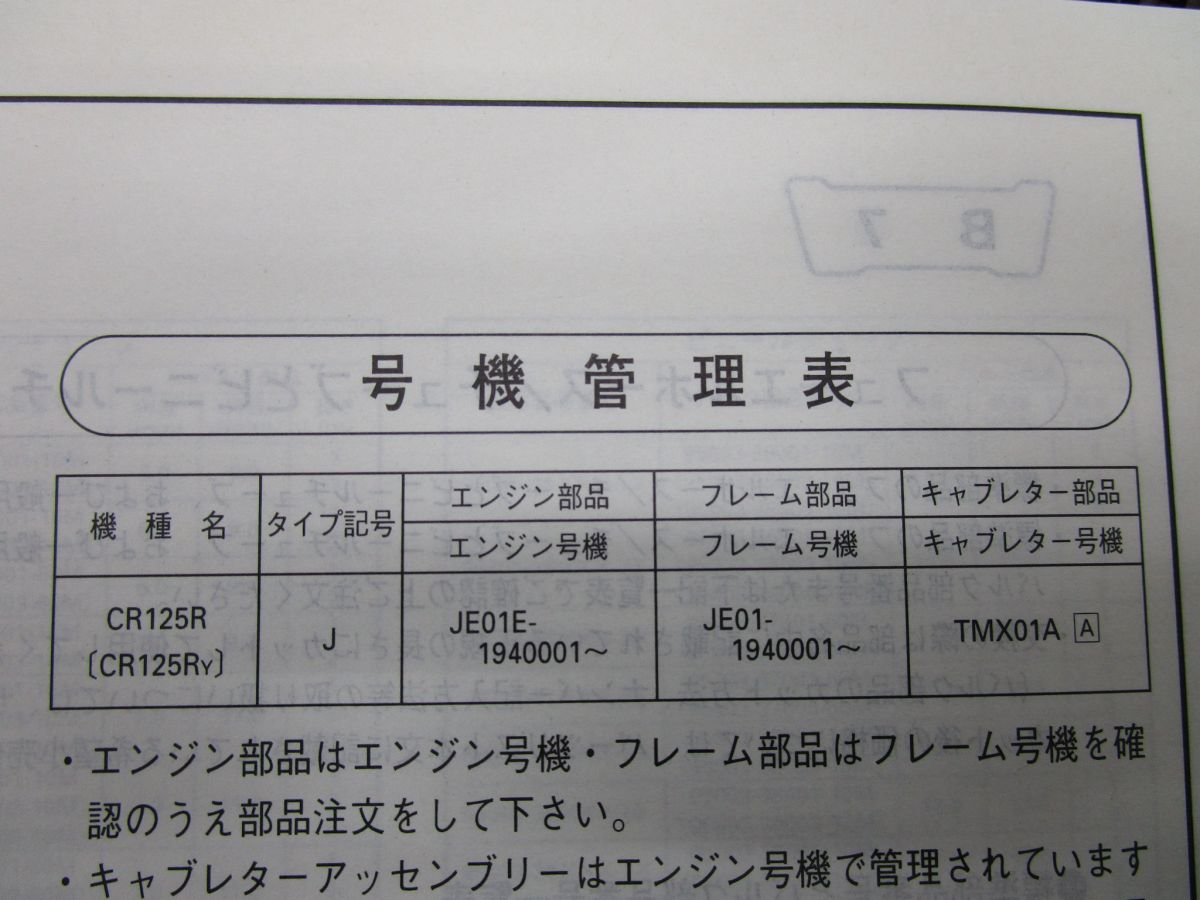 号機管理表
機種名 タイプ記号 エンジン部品 フレーム部品 キャブレター部品
エンジン号機 フレーム号機 キャブレター号機
CR125R
〔CR125RY〕
J
JE01E-
1940001～
JE01-
1940001～
TMX01A A
・エンジン部品はエンジン号機・フレーム部品はフレーム号機を確
認のうえ部品注文をして下さい。
・キャブレターアッセンブリーはエンジン号機で管理されています